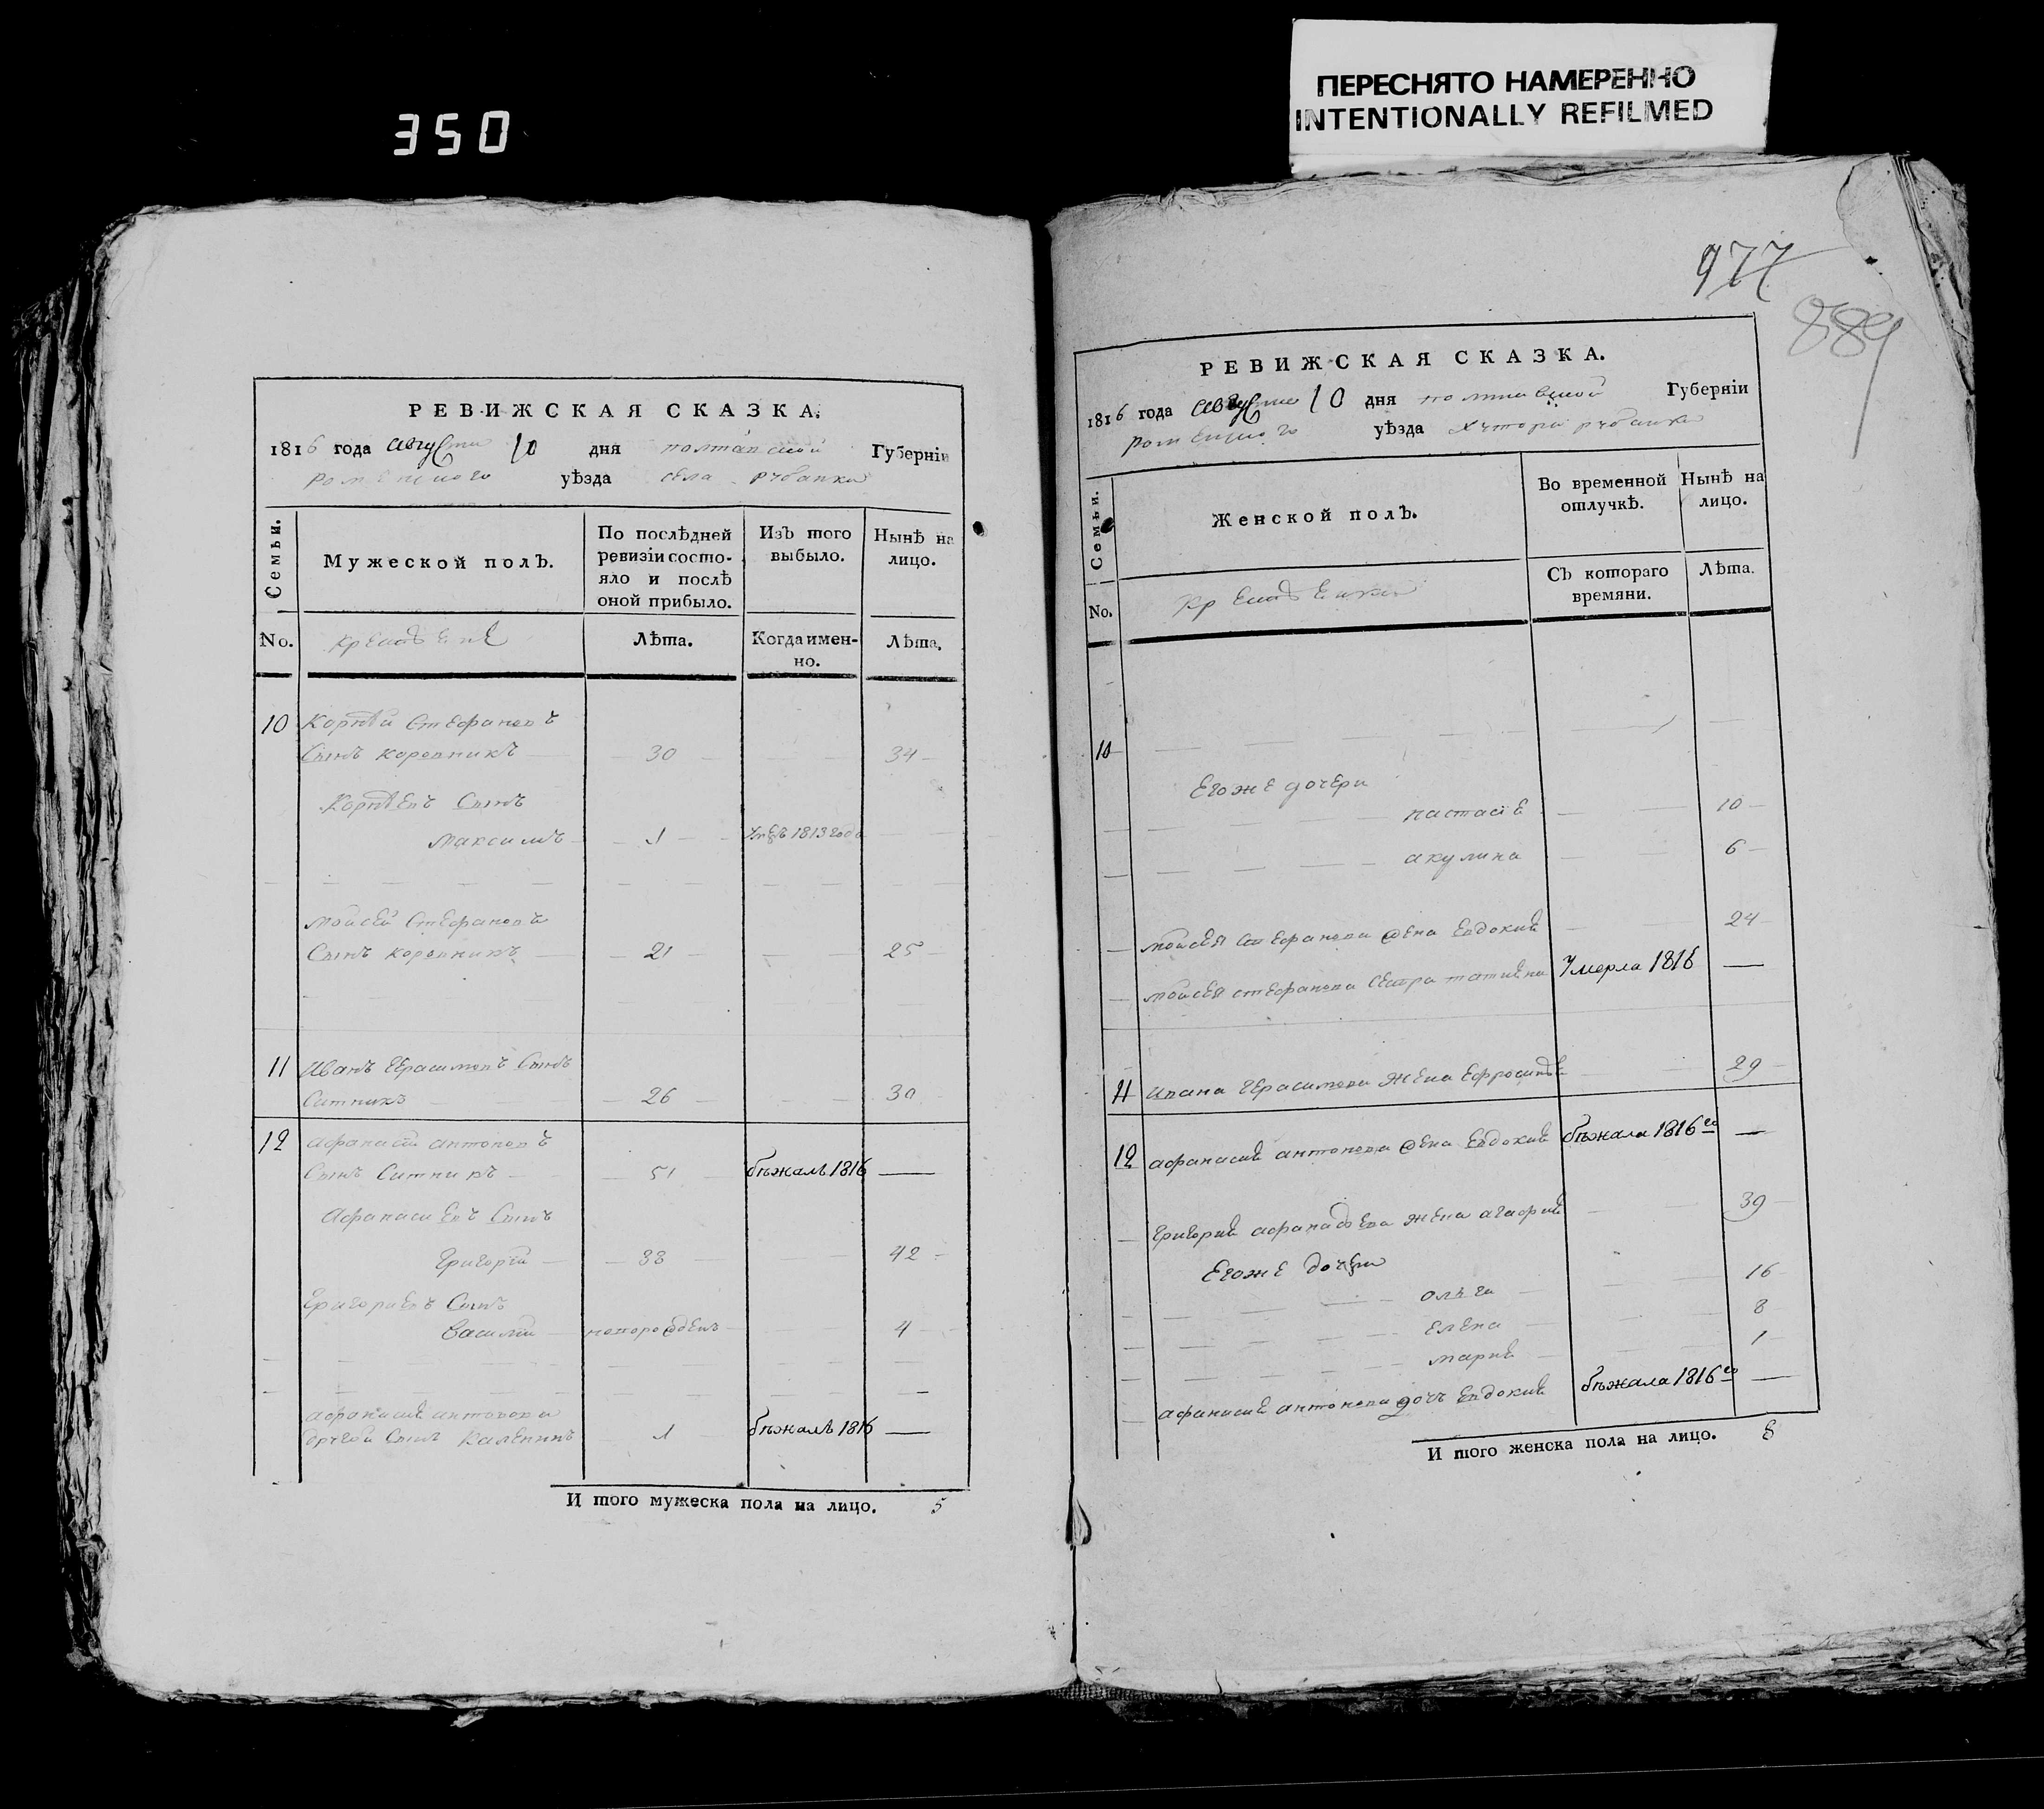 350
ПЕРЕСНЯТО НАМЕРЕННО
INTENTIONALLY REFILMED
РЕВИЖСКАЯ СКАЗКА.
1816 года августа 10 дня полтавской Губерніи
роменского уѣзда села рубанки
Семьи.
Мужеской полъ.
По послѣдней ревизіи состояло и послѣ оной прибыло.
Изъ того выбыло.
Нынѣ на лицо.
No. крестьяне Лѣта. Когда именно. Лѣта.
10 Корнѣй Стефановъ
Сынъ коровникъ 30 34
Корнѣевъ Сынъ
Максимъ 1 1813 года
Моисей Стефановъ
Сынъ коровникъ 21 25
11 Иванъ Герасимовъ Сынъ
Ситникъ 26 30
12 Афанасій антоновъ
Сынъ Ситникъ 51 бѣжалъ 1816 —
Афанасиевъ Сынъ
Григорій 38 42
Григориевъ Сынъ
Василій новорожденъ 4
афанасия антонова
другой Сынъ Каленикъ 1 бѣжалъ 1816 —
И того мужеска пола на лицо. 5
977
889
РЕВИЖСКАЯ СКАЗКА.
1816 года августа 10 дня полтавской Губерніи
роменского уѣзда рубанки
Семьи.
Женской полъ.
Во временной отлучкѣ.
Нынѣ на лицо.
No. Съ котораго времяни. Лѣта.
10
Егоже дочери
настасіе 10
акулина 6
Моисея Стефанова жена Евдокия 24
Моисея стефанова сестра татияна Умерла 1816 —
11 Ивана Герасимова жена Ефросиния 29
12 афанасия антонова жена Евдокия бѣжала 1816го —
Григория афанасьева жена агафия 39
Егоже дочери
олга 16
елена 8
мария 1
афанасия антонова дочь Евдокия бѣжала 1816го —
И того женска пола на лицо. 8